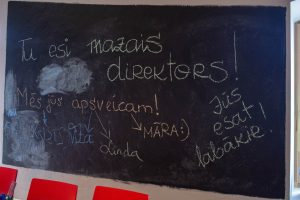 Tu esi mazais
direktors!
Mēs jūs apsveicam!
MĀRA:)
Linda
Jūs
esat
labākie!